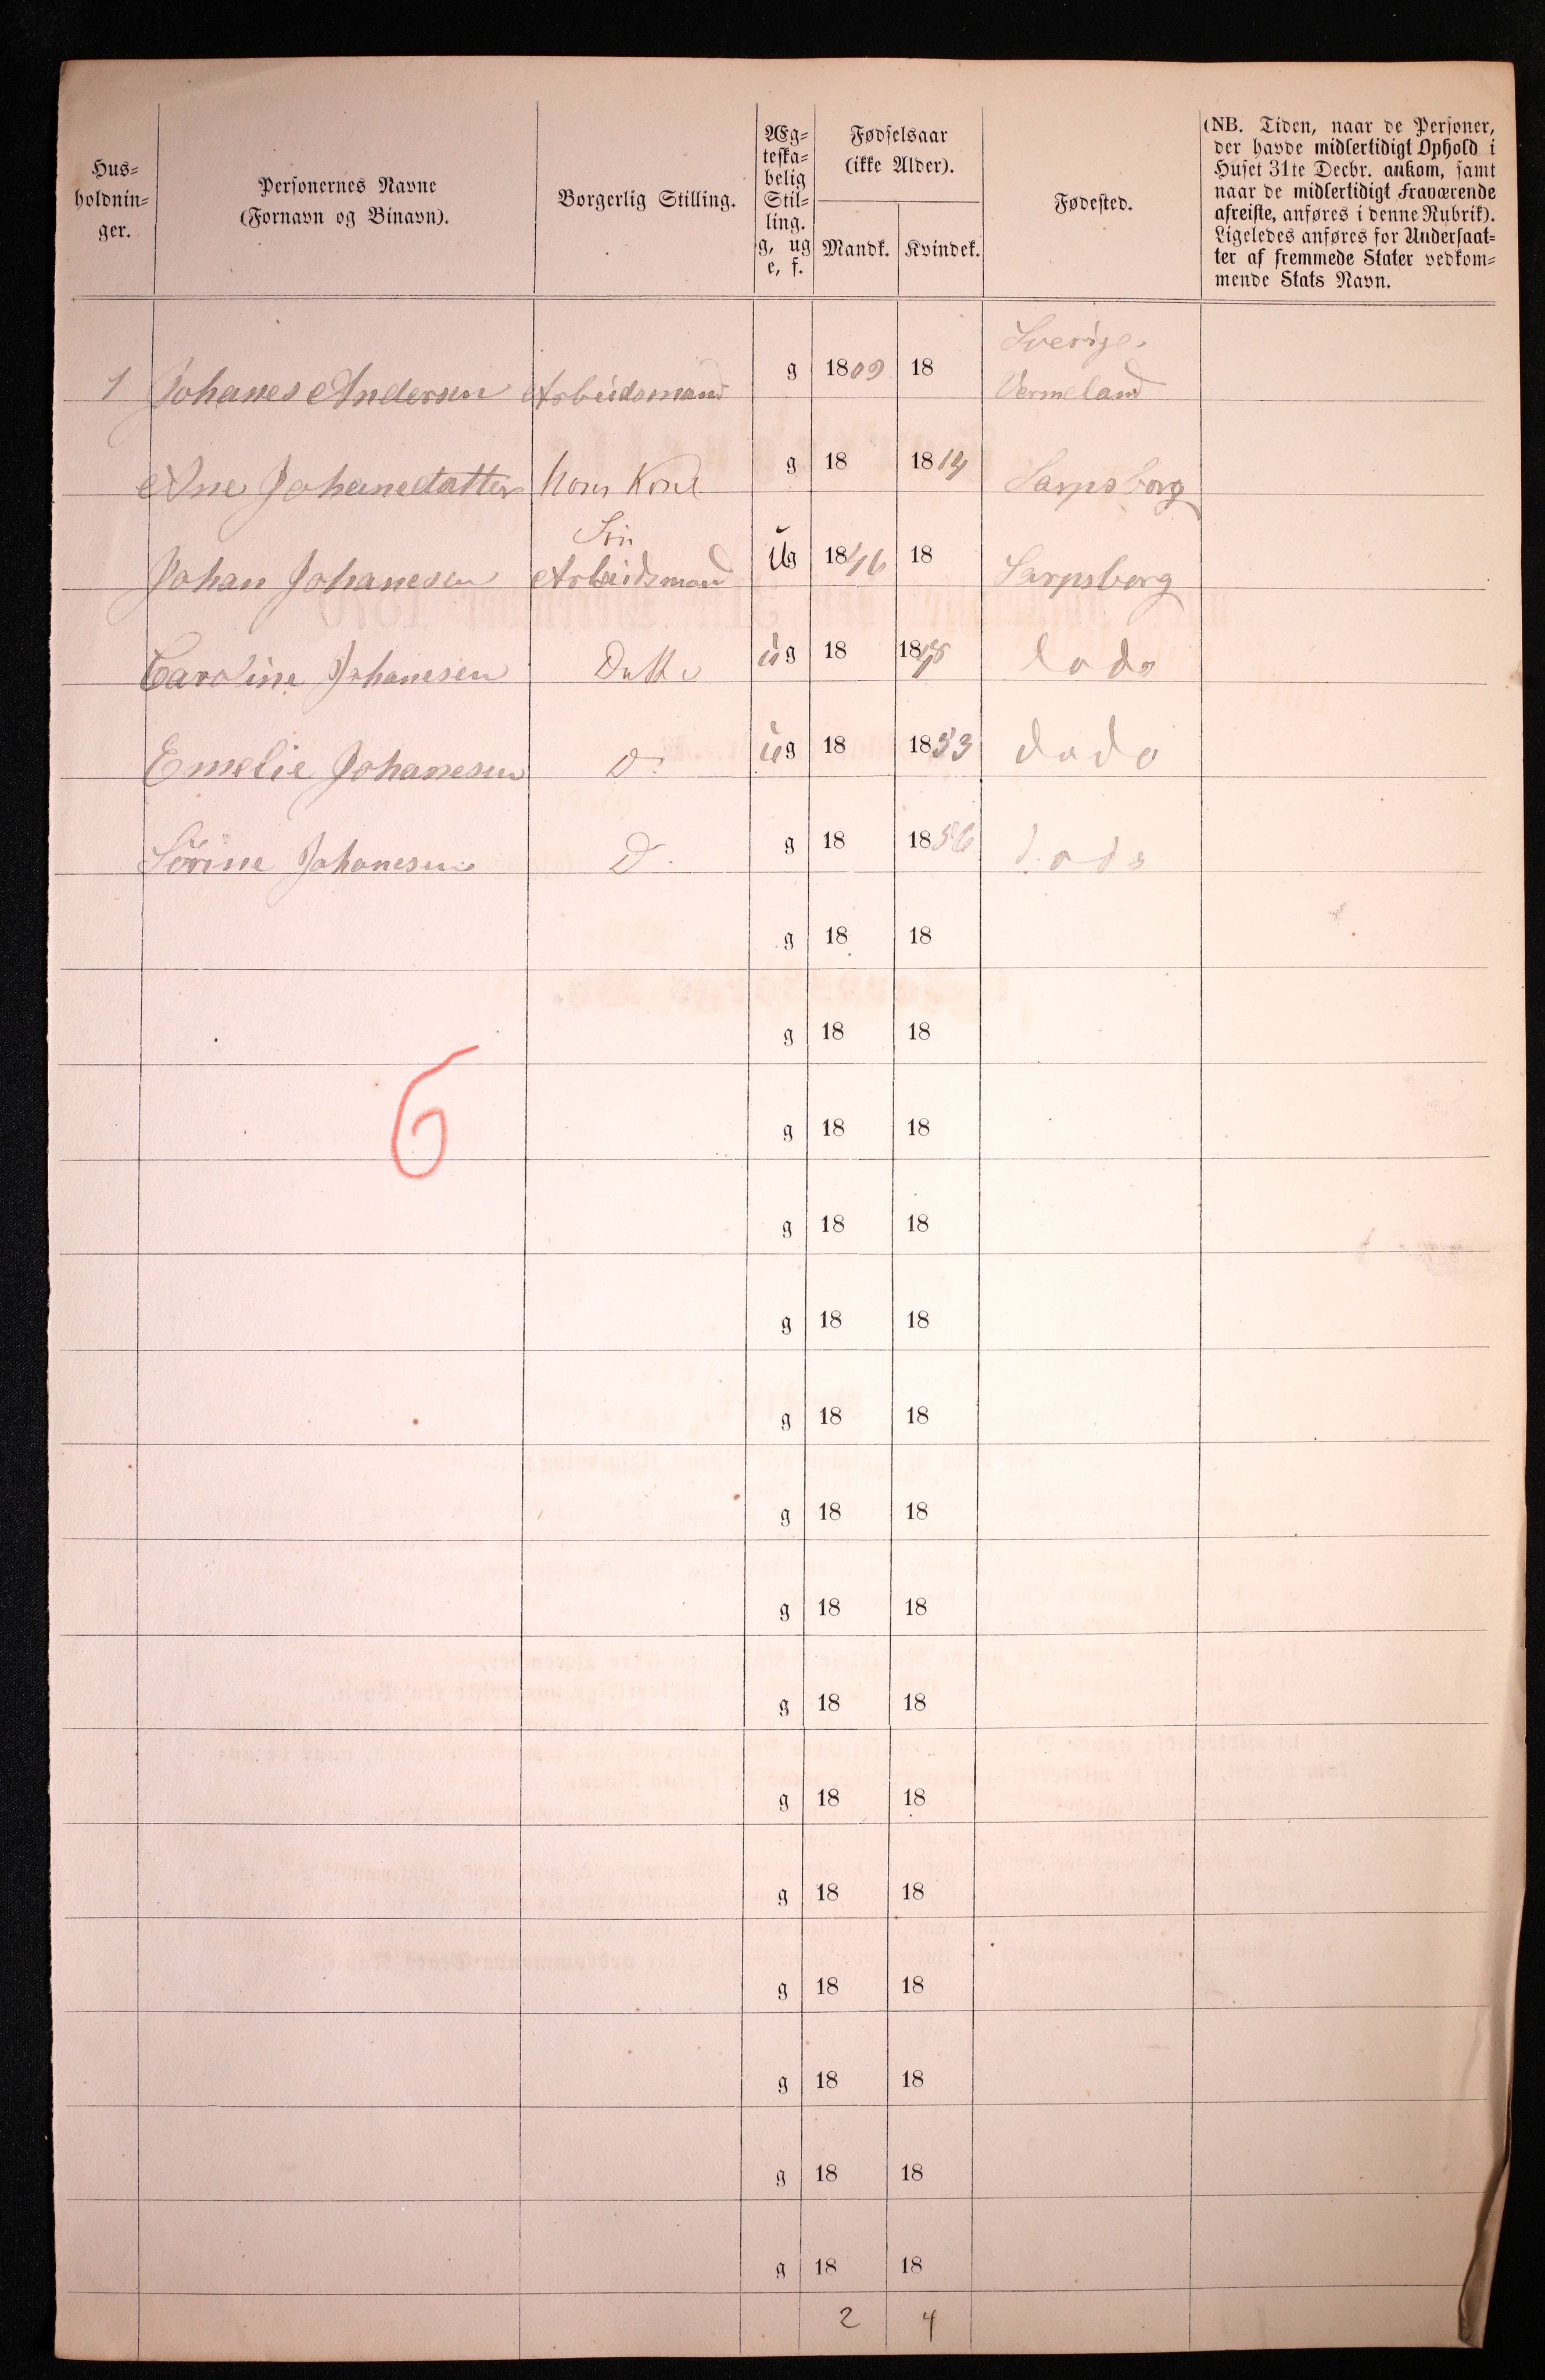 Hus-
holdnin-
ger.
Personernes Navne
(Fornavn og Binavn).
Borgerlig Stilling.
Æg-
teska-
belig
Stil-
ling.
g, ug
e, f.
Fødselsaar
(ikke Alder).
Mandk. Kvindek.
Fødested.
(NB. Tiden, naar de Personer,
der havde midlertidigt Ophold i
Huset 31te Decbr. ankom, samt
naar de midlertidigt fraværende
afreiste, anføres i denne Rubrik).
Ligeledes anføres for Undersaat-
ter af fremmede Stater vedkom-
mende Stats Navn.
Sverige.
1 Johanes Andersen Arbeidsmand g 1809 18 Vermeland
Ane Johanedatter Hans Kone g 18 1814 Sarpsborg
Sön
Johan Johanesen Arbeidsmand ug 1846 18 Sarpsborg
Caroline Johanesen Datter ug 18 18 dodo
Emelie Johanesen D. ug 18 1853 dodo
Sörine Johanesen D. g 18 1856 dodo
g 18 18
g 18 18
6
g 18 18
g 18 18
g 18 18
g 18 18
g 18 18
g 18 18
g 18 18
g 18 18
g 18 18
g 18 18
g 18 18
g 18 18
g 18 18
2 4